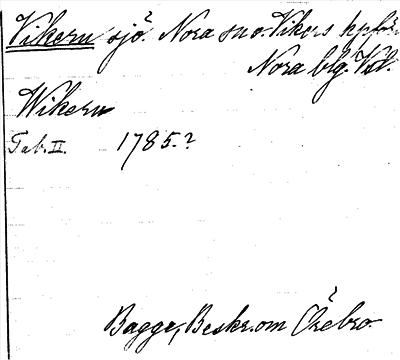 Vikern sjö. Nora sn o. Vikers kpförs.
Nora blg. Vsl.
Wikern
Tab. II. 1785.?
Bagge, Beskr. om Örebro